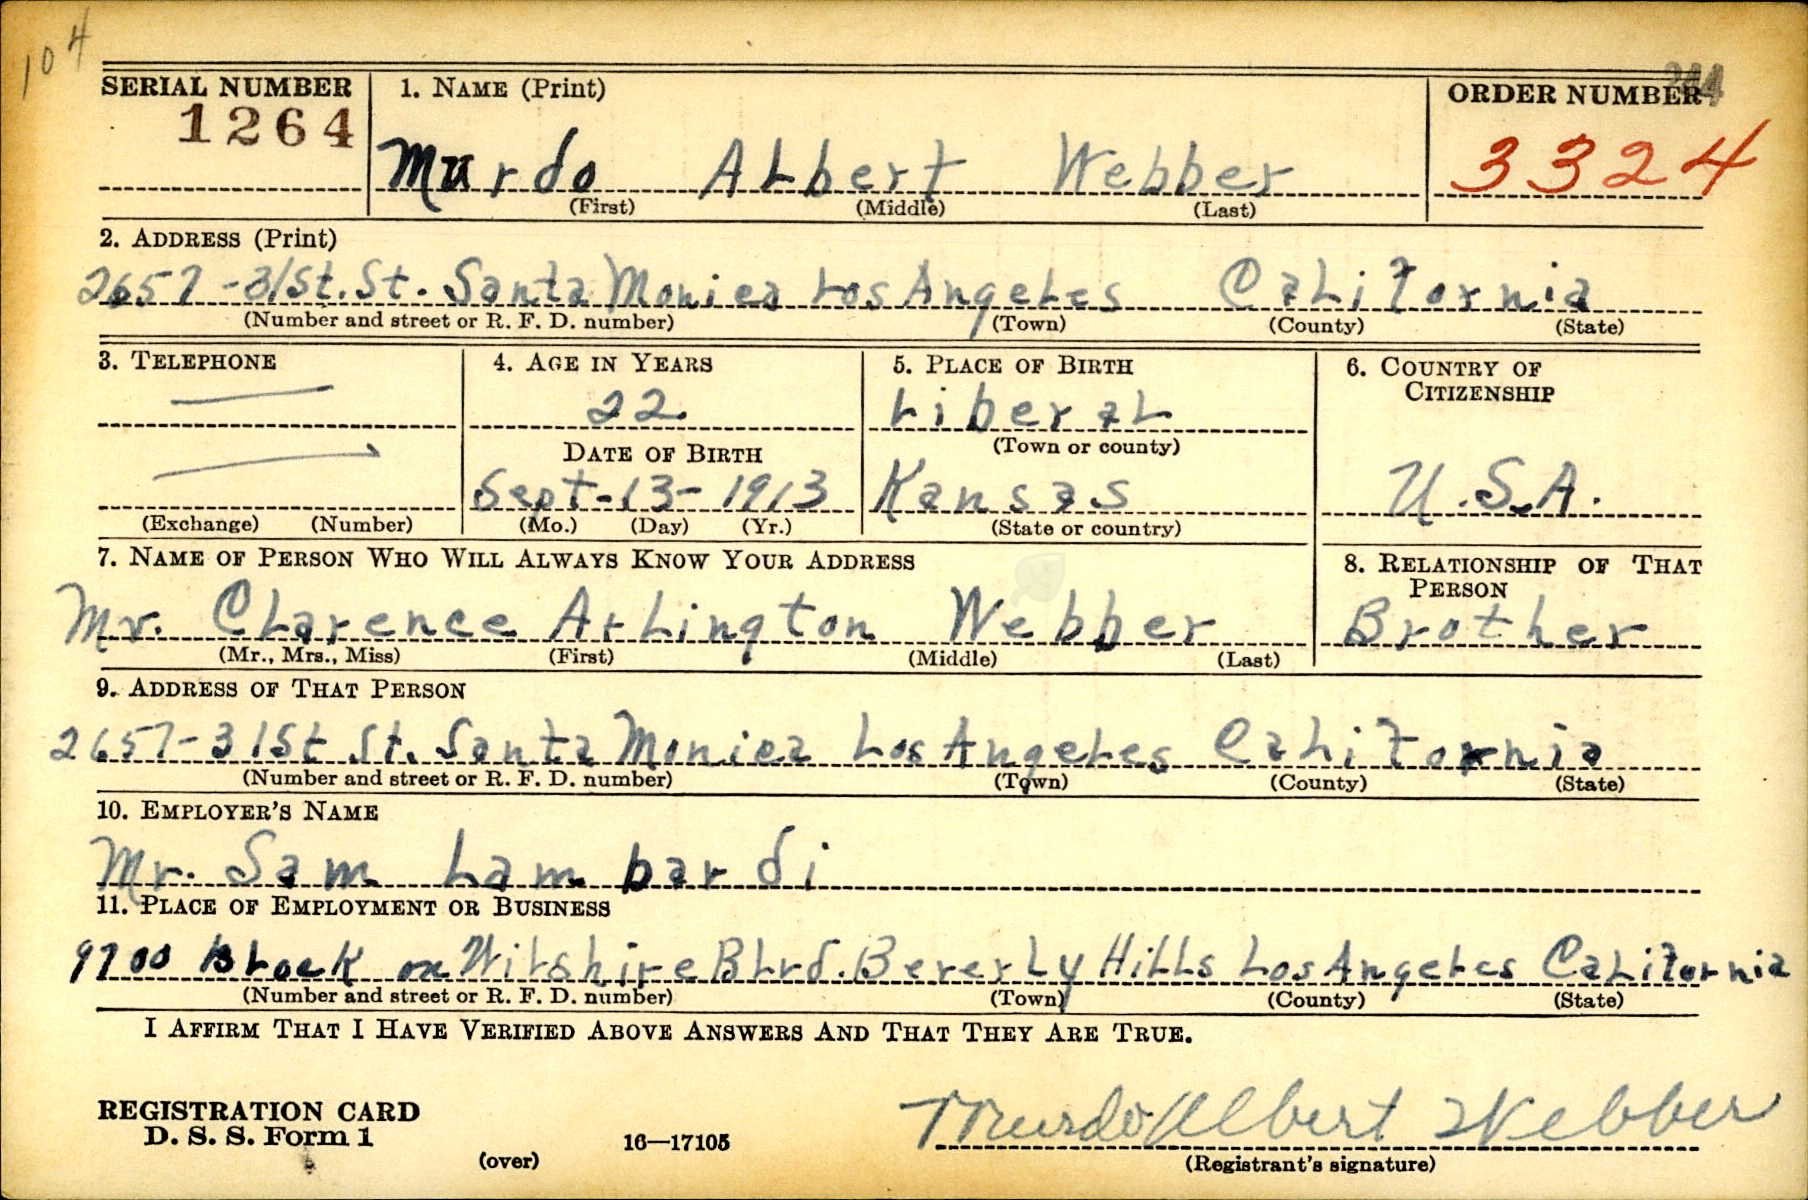 104
SERIAL NUMBER 1. NAME (Print) ORDER NUMBER
1264 Murdo Albert Webber 3324
(First) (Middle) (Last)
2. ADDRESS (Print)
2657-31st. St. Santa Monica Los Angeles California
(Number and street or R. F. D. number) (Town) (County) (State)
3. TELEPHONE 4. AGE IN YEARS 5. PLACE OF BIRTH 6. COUNTRY OF CITIZENSHIP
22. Liberal
DATE OF BIRTH (Town or county)
Sept-13-1913 Kansas U.S.A.
(Exchange) (Number) (Mo.) (Day) (Yr.) (State or country)
7. NAME OF PERSON WHO WILL ALWAYS KNOW YOUR ADDRESS 8. RELATIONSHIP OF THAT PERSON
Mr. Clarence Arlington Webber Brother
(Mr., Mrs., Miss) (First) (Middle) (Last)
9. ADDRESS OF THAT PERSON
2657-31st St. Santa Monica Los Angeles California
(Number and street or R. F. D. number) (Town) (County) (State)
10. EMPLOYER'S NAME
Mr. Sam Lambardi
11. PLACE OF EMPLOYMENT OR BUSINESS
9700 Block on Wilshire Blvd. Beverly Hills Los Angeles California
(Number and street or R. F. D. number) (Town) (County) (State)
I AFFIRM THAT I HAVE VERIFIED ABOVE ANSWERS AND THAT THEY ARE TRUE.
REGISTRATION CARD
D. S. S. Form 1 16—17105 Murdo Albert Webber
(over) (Registrant's signature)